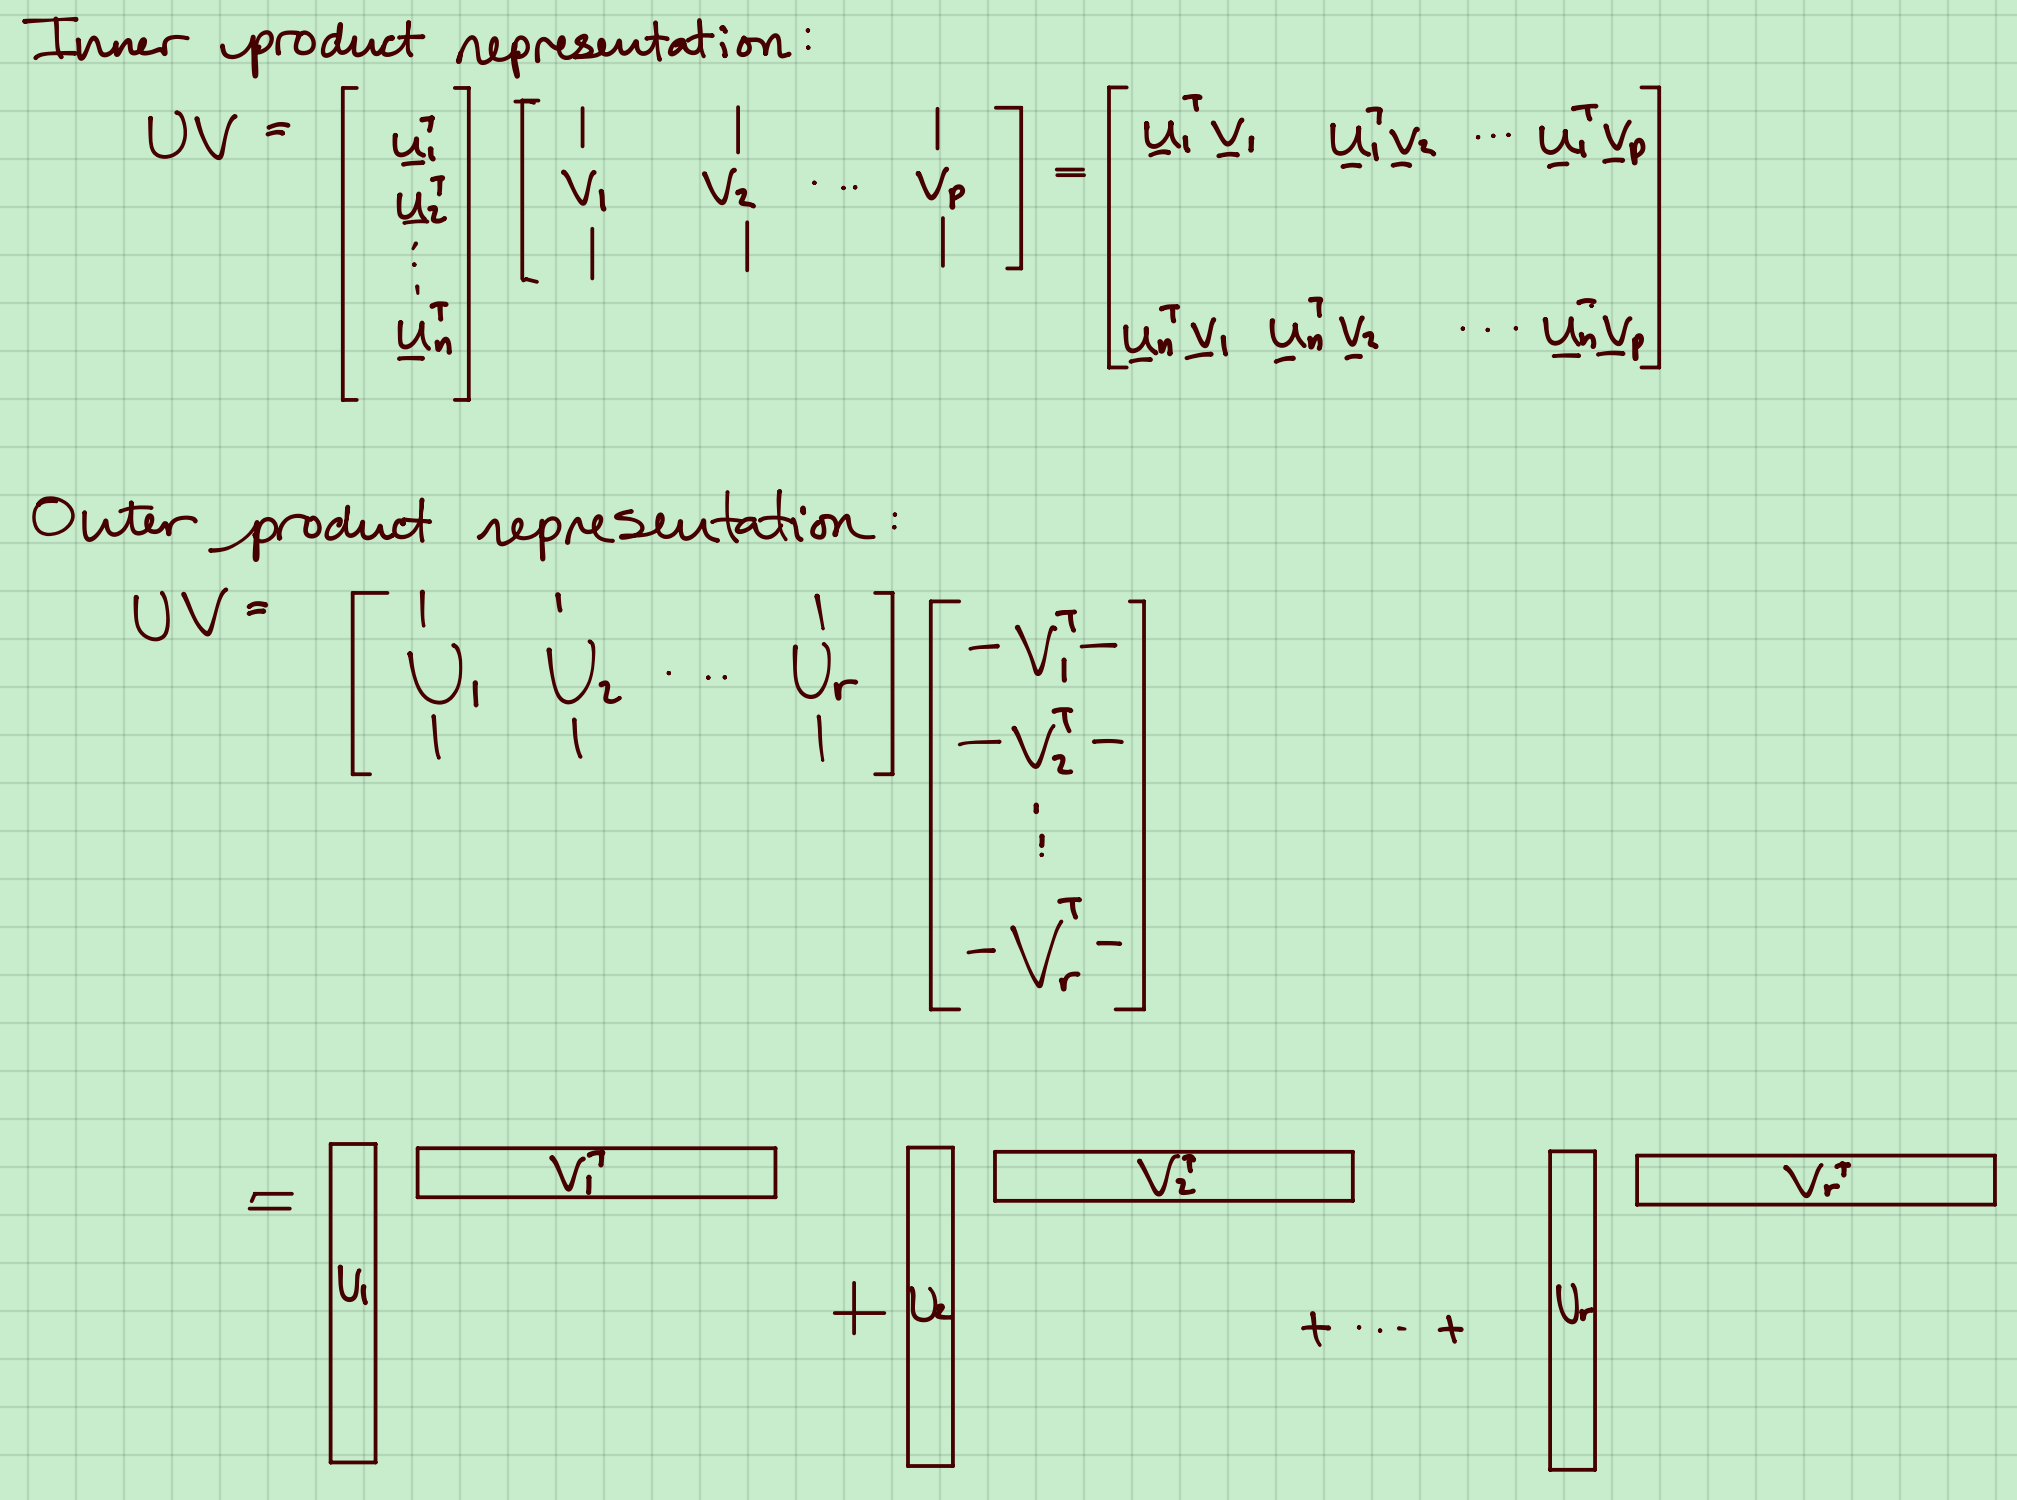 Inner product representation:
UV = [u₁ᵀ u₂ᵀ ⋮ uₙᵀ] [v₁ v₂ ⋯ vₚ] = [u₁ᵀv₁ u₁ᵀv₂ ⋯ u₁ᵀvₚ
uₙᵀv₁ uₙᵀv₂ ⋯ uₙᵀvₚ]
Outer product representation:
UV = [U₁ U₂ ⋯ Uᵣ] [– V₁ᵀ –
– V₂ᵀ –
⋮
– Vᵣᵀ –]
= U₁ V₁ᵀ + U₂ V₂ᵀ + ⋯ + Uᵣ Vᵣᵀ